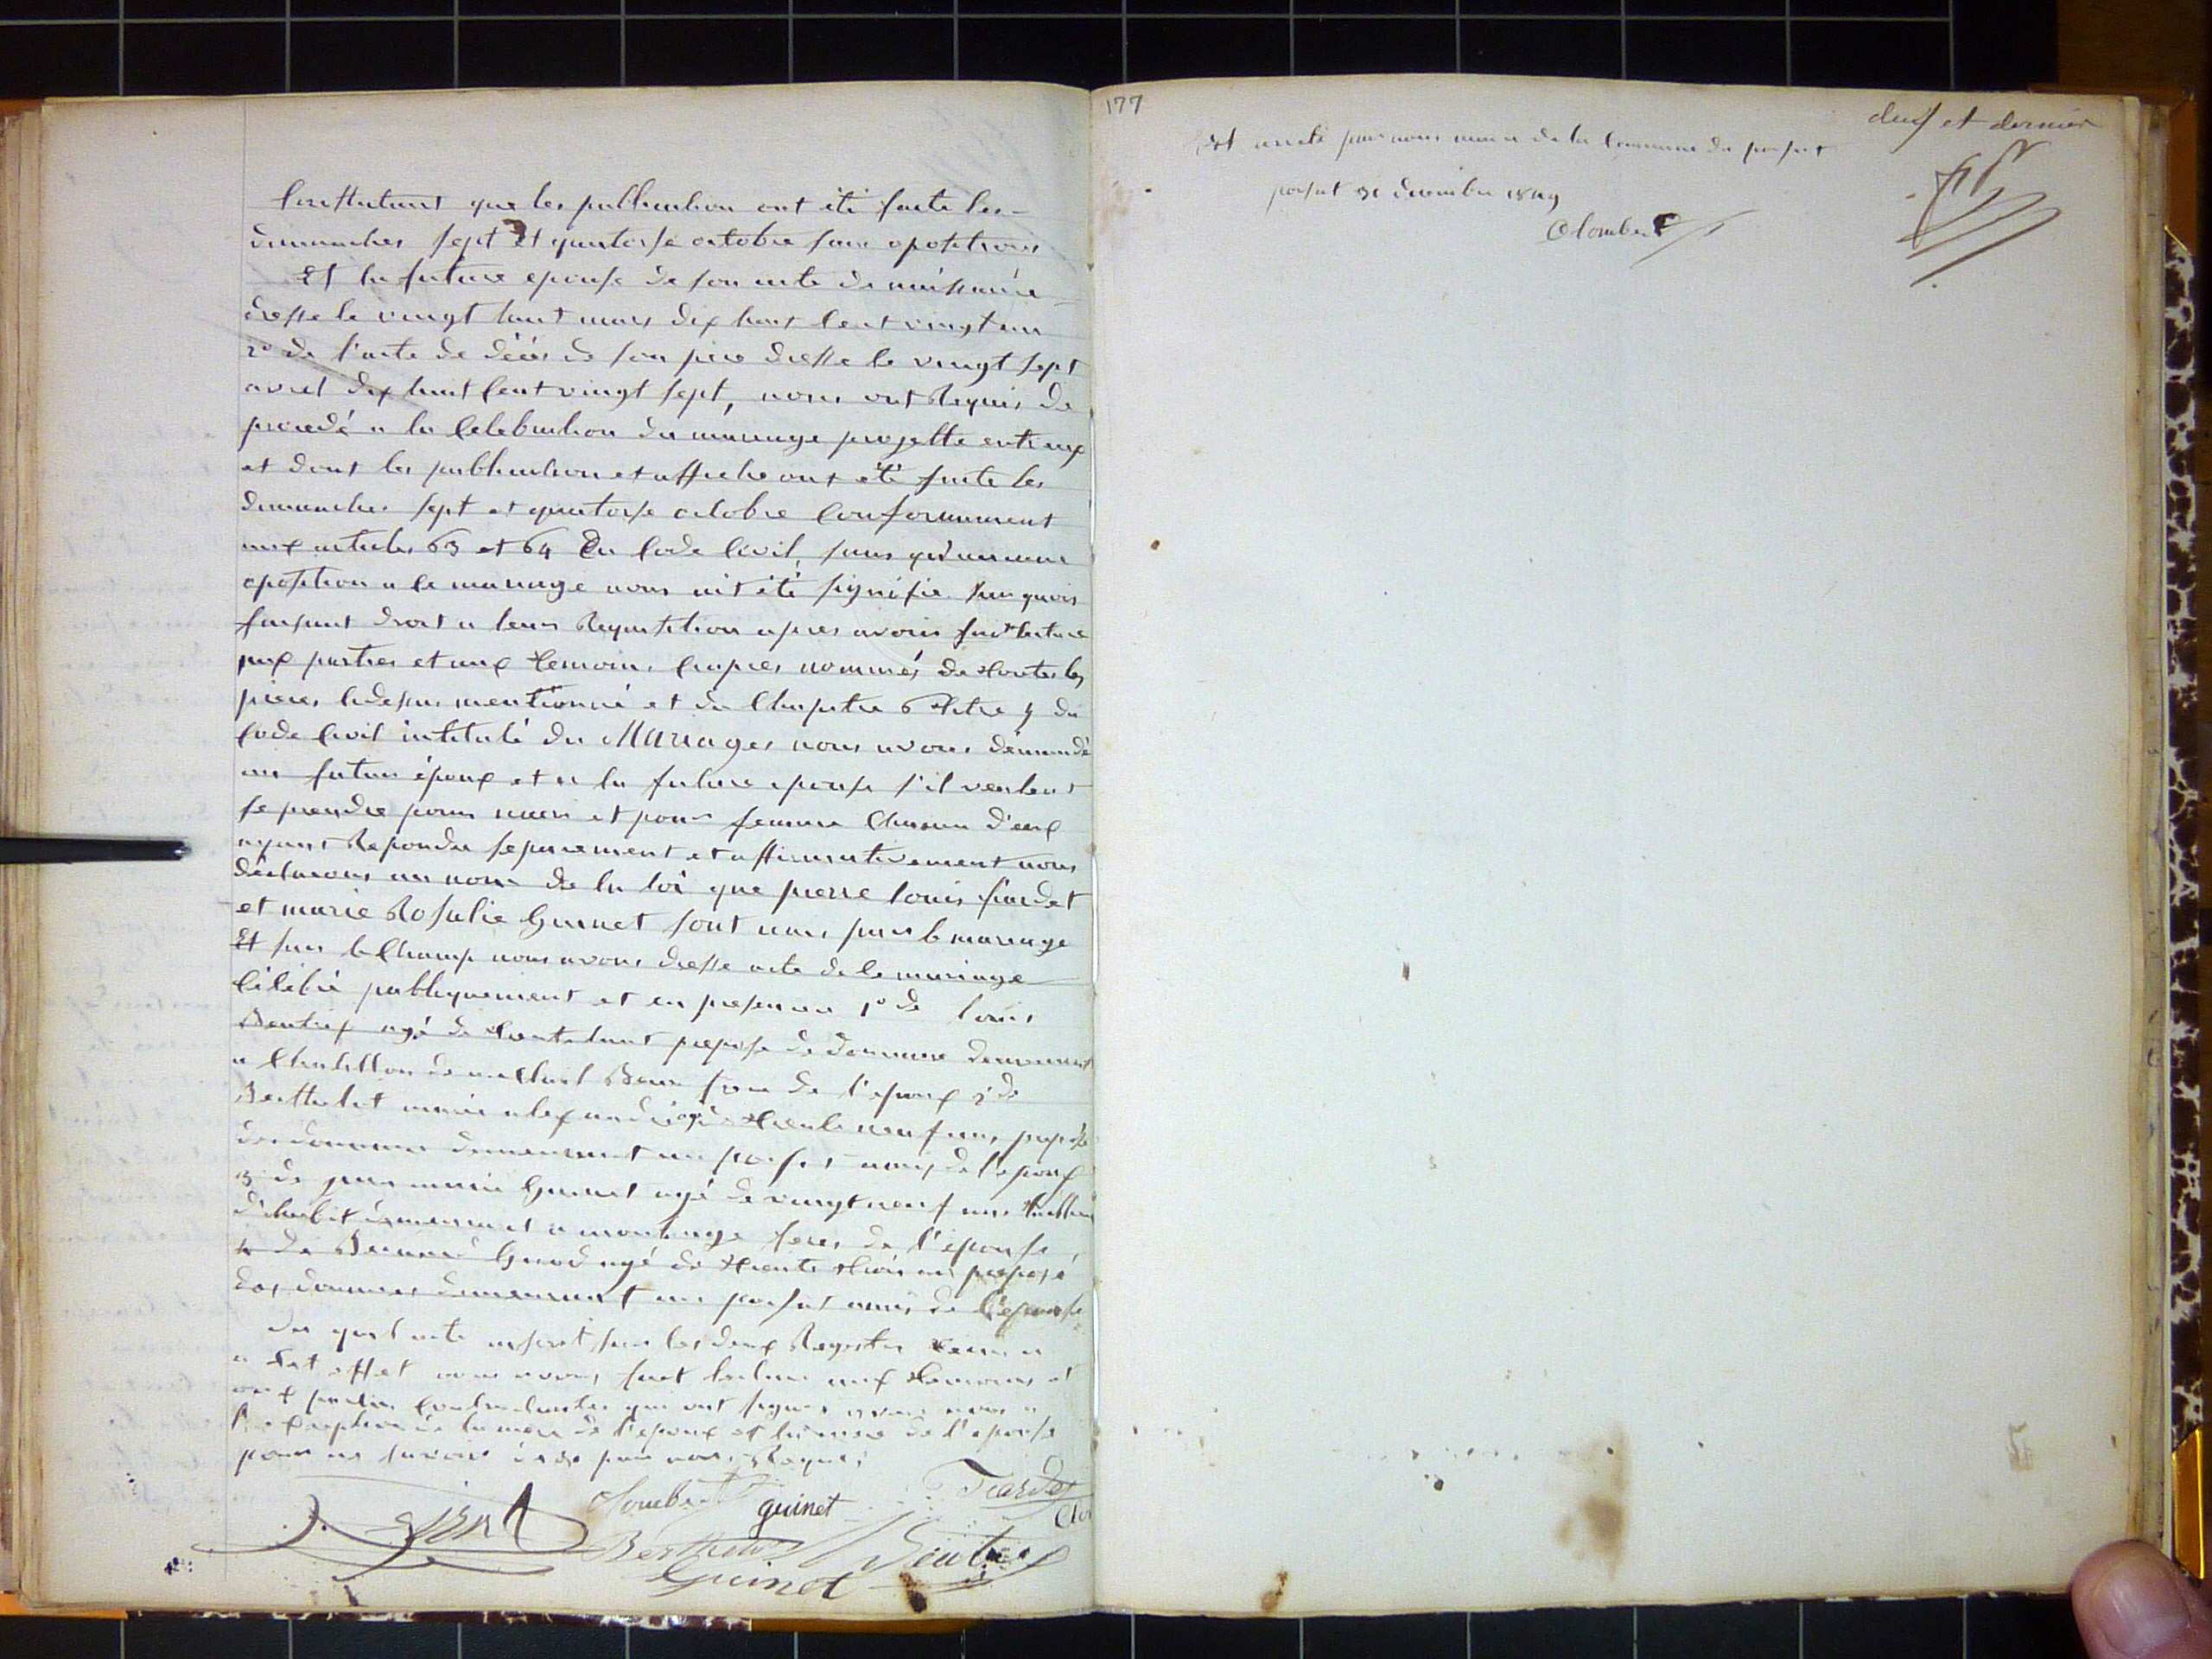 Constatant que les publication ont été faite les
dimanches sept et quatorse octobre sans opositions
Et la future epouse de son acte de naissance
dresse le vingt huit mars dix huit cent vingt un
2° de l'acte de décès de son père dresse le vingt sept
avril dix huit cent vingt sept, nous ont Requis de
procedé a la Celebration du mariage projette entre eux
et dont les publication et affiche ont été faite les
dimanches sept et quatorse octobre Conformement
aux articles 63 et 64 du Code Civil, sans qu'aucune
oposition a ce mariage nous ait été signifie sur quois
faisant droit a leurs Requisition apres avoir fait lecture
aux parties et aux temoins Ciapres nommés de toutes les
pieces cidessus mentionné et du Chapitre 6 titre 5 du
Code Civil intitulé du Mariages nous avons démandé
au futur époux et a la future epouse s'il veulent
se prendre pour mari et pour femme Chacun d'eux
ayant Repondu separement et affirmativement nous
déclarons au nom de la loi que pierre louis fiardet
et marie Rosalie Guinet sont unis par le mariage
Et sur le Champ nous avons dresse acte de ce mariage
Célébré publiquement et en presence 1° de louis
agé de trente huit préposé de douane demeurant
a Chatillon de michail Beau frere de l'epoux 2° de
Berthelet marie alexandre agé trente neuf ans, préposé
des douanes demeurant au amis de l'epoux
3° de jean marie Guinet agé de vingt neuf ans tailleur
d'habit demeurant a montange frere de l'épouse,
4° de Bernard Girod agé de trente trois ans préposé
des douanes demeurant au amis de l'épouse
du quel acte inscrit sur les deux Registres tenu a
cet effet nous avons fait lecture aux temoins et
aux parties Contractantes qui ont signés avec nous a
l'exception de la mere de l'epoux et la mere de l'epouse
pour ne savoir de ce par nous Requis
Colombet guinet Fiardet
Berthelet
Guinet
177
deux et dernier
Est arreté par nous maire de la Commune de
31 decembre 1849
Colombet